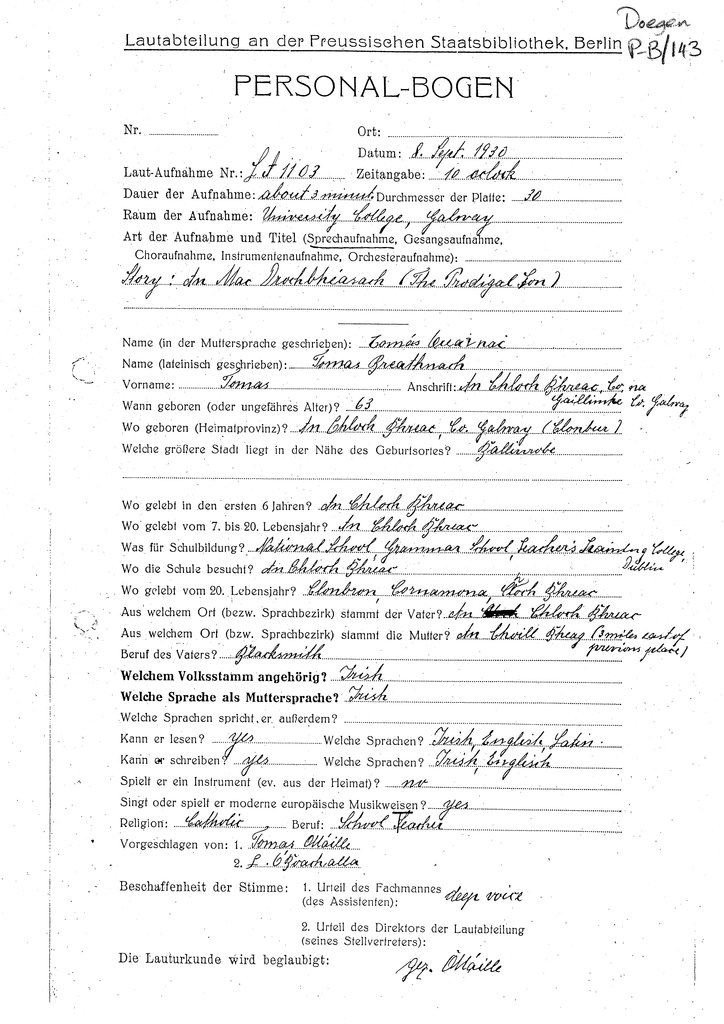 Doegen
P-B/143
Lautabteilung an der Preussischen Staatsbibliothek, Berlin
PERSONAL-BOGEN
Nr. Ort:
Datum: 8. Sept. 1930
Laut-Aufnahme Nr.: LA 1103 Zeitangabe: 10 oclock
Dauer der Aufnahme: about 3 minut. Durchmesser der Platte: 30
Raum der Aufnahme: University College, Galway
Art der Aufnahme und Titel (Sprechaufnahme, Gesangsaufnahme,
Choraufnahme, Instrumentenaufnahme, Orchesteraufnahme):
Story: An Mac Drochbhéasach (The Prodigal Son)
Name (in der Muttersprache geschrieben): Tomás
Name (lateinisch geschrieben): Tomas Breathnach
Vorname: Tomas Anschrift: An Chloch Bhreac, Co. na
Gaillimhe Co. Galway
Wann geboren (oder ungefähres Alter)? 63
Wo geboren (Heimatprovinz)? An Chloch Bhreac, Co. Galway (Clonbur)
Welche größere Stadt liegt in der Nähe des Geburtsortes? Ballinrobe
Wo gelebt in den ersten 6 Jahren? An Chloch Bhreac
Wo gelebt vom 7. bis 20. Lebensjahr? An Chloch Bhreac
Was für Schulbildung? National School, Grammar School, Teacher's Training College,
Dublin
Wo die Schule besucht? An Chloch Bhreac
Wo gelebt vom 20. Lebensjahr? Clonbron, Cornamona, Cloch Bhreac
Aus welchem Ort (bezw. Sprachbezirk) stammt der Vater? An Chloch Bhreac
Aus welchem Ort (bzw. Sprachbezirk) stammt die Mutter? An Choill Bheag (3 miles east of
previous place)
Beruf des Vaters? Blacksmith
Welchem Volksstamm angehörig? Irish
Welche Sprache als Muttersprache? Irish
Welche Sprachen spricht er außerdem?
Kann er lesen? yes Welche Sprachen? Irish, English, Latin.
Kann er schreiben? yes Welche Sprachen? Irish, English
Spielt er ein Instrument (ev. aus der Heimat)? no
Singt oder spielt er moderne europäische Musikweisen? yes
Religion: Catholic Beruf: School Teacher
Vorgeschlagen von: 1. Tomás OMáille
2. L. O Buachalla
Beschaffenheit der Stimme: 1. Urteil des Fachmannes deep voice
(des Assistenten):
2. Urteil des Direktors der Lautabteilung
(seines Stellvertreters):
Die Lauturkunde wird beglaubigt: gez. OMáille